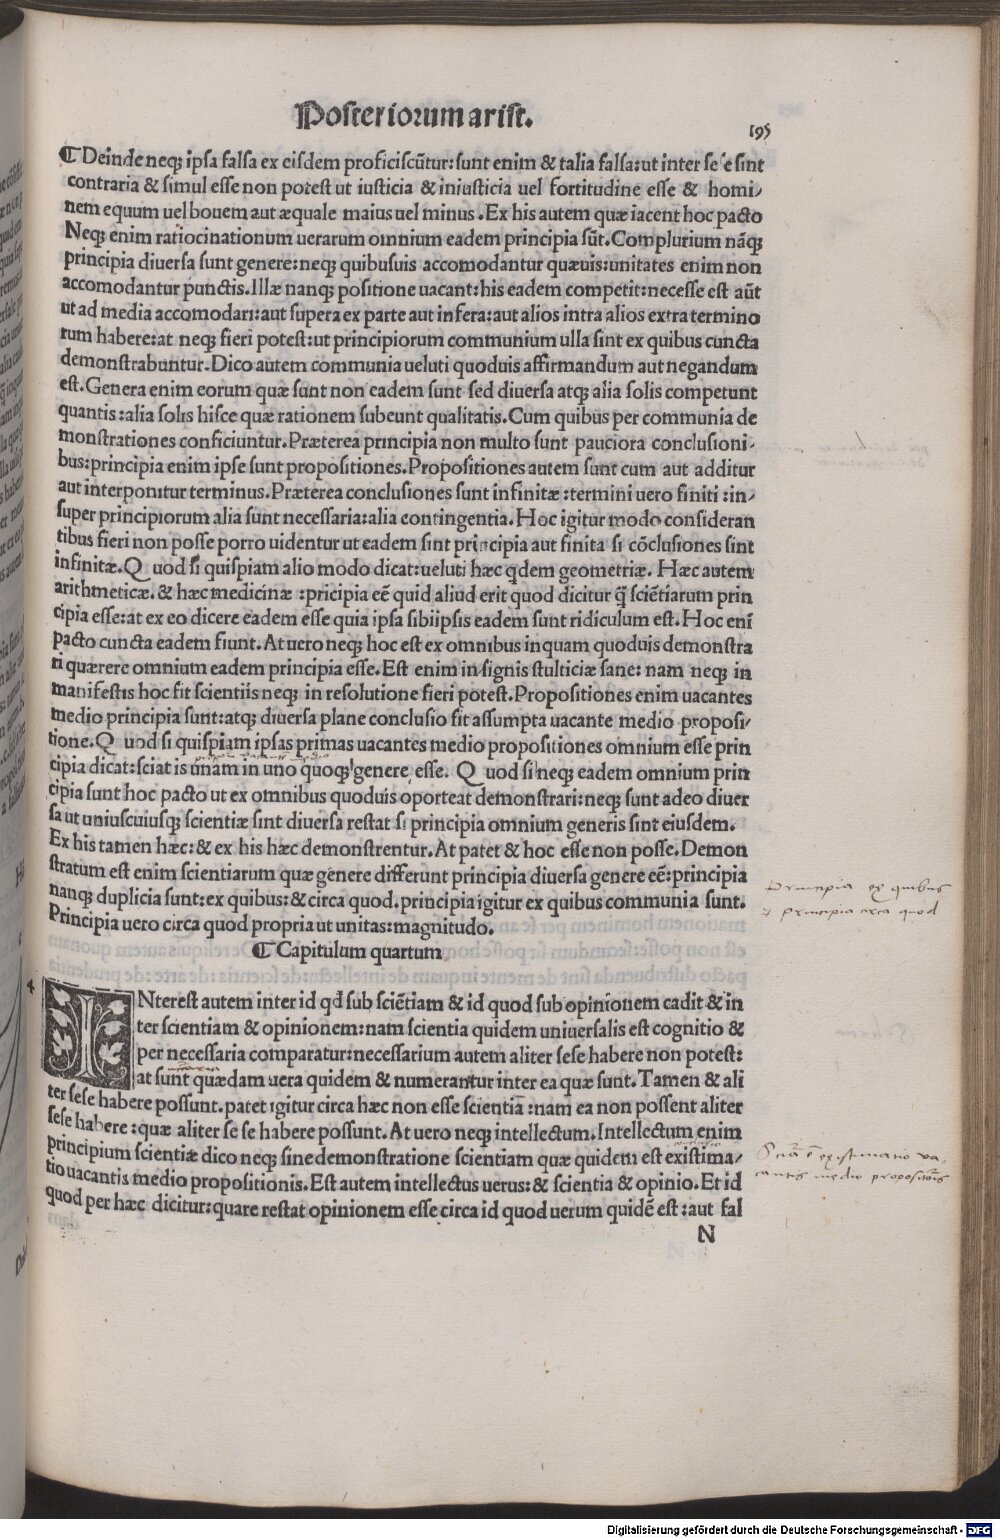 Posteriorum arist.
195
⁋ Deinde neq; ipsa falsa ex eisdem proficiscũtur: sunt enim & talia falsa: ut inter se e sint
contraria & simul esse non potest ut iusticia & iniusticia uel fortitudine esse & homi/
nem equum uel bouem aut æquale maius uel minus. Ex his autem quæ iacent hoc pacto
Neq; enim ratiocinationum uerarum omnium eadem principia sũt. Complurium nãq;
principia diuersa sunt genere: neq; quibusuis accomodantur quæuis: unitates enim non
accomodantur punctis. Illæ nanq; positione uacant: his eadem competit: necesse est aũt
ut ad media accomodari: aut supera ex parte aut infera: aut alios intra alios extra termino
rum habere: at neq; fieri potest: ut principiorum communium ulla sint ex quibus cuncta
demonstrabuntur. Dico autem communia ueluti quoduis affirmandum aut negandum
est. Genera enim eorum quæ sunt non eadem sunt sed diuersa atq; alia solis competunt
quantis: alia solis hisce quæ rationem subeunt qualitatis. Cum quibus per communia de
monstrationes conficiuntur. Præterea principia non multo sunt pauciora conclusioni-
bus: principia enim ipse sunt propositiones. Propositiones autem sunt cum aut additur
aut interponitur terminus. Præterea conclusiones sunt infinitæ: termini uero finiti: in/
super principiorum alia sunt necessaria: alia contingentia. Hoc igitur modo consideran
tibus fieri non posse porro uidentur ut eadem sint principia aut finita si cõclusiones sint
infinitæ. Q uod si quispiam alio modo dicat: ueluti hæc qdem geometriæ. Hæc autem
arithmeticæ. & hæc medicinæ: pricipia eẽ quid aliud erit quod dicitur q̃ sciẽtiarum prin
cipia esse: at ex eo dicere eadem esse quia ipsa sibiipsis eadem sunt ridiculum est. Hoc enĩ
pacto cuncta eadem fiunt. At uero neq; hoc est ex omnibus inquam quoduis demonstra
ri quærere omnium eadem principia esse. Est enim insignis stulticiæ sane: nam neq; in
manifestis hoc fit scientiis neq; in resolutione fieri potest. Propositiones enim uacantes
medio principia sunt: atq; diuersa plane conclusio fit assumpta uacante medio proposi/
tione. Q uod si quispiam ipsas primas uacantes medio propositiones omnium esse prin
cipia dicat: sciat is unam in uno quoq; genere esse. Q uod si neq; eadem omnium prin
cipia sunt hoc pacto ut ex omnibus quoduis oporteat demonstrari: neq; sunt adeo diuer
sa ut uniuscuiusq; scientiæ sint diuersa restat si principia omnium generis sint eiusdem.
Ex his tamen hæc: & ex his hæc demonstrentur. At patet & hoc esse non posse. Demon
stratum est enim scientiarum quæ genere differunt principia diuersa genere eẽ: principia
nanq; duplicia sunt: ex quibus: & circa quod. principia igitur ex quibus communia sunt.
Principia uero circa quod propria ut unitas: magnitudo.
principia ex quibus
& principia circa quod
⁋ Capitulum quartum
4
INterest autem inter id qd sub sciẽtiam & id quod sub opinionem cadit & in
ter scientiam & opinionem: nam scientia quidem uniuersalis est cognitio &
per necessaria comparatur: necessarium autem aliter sese habere non potest:
at sunt quædam uera quidem & numerantur inter ea quæ sunt. Tamen & ali
ter sese habere possunt. patet igitur circa hæc non esse scientiã: nam ea non possent aliter
sese habere: quæ aliter se se habere possunt. At uero neq; intellectum. Intellectum enim
principium scientiæ dico neq; sine demonstratione scientiam quæ quidem est existima/
tio uacantis medio propositionis. Est autem intellectus uerus: & scientia & opinio. Et id
quod per hæc dicitur: quare restat opinionem esse circa id quod uerum quidẽ est: aut fal
Sciã ẽ existimatio va-
cantis medio propositiõis
N
Digitalisierung gefördert durch die Deutsche Forschungsgemeinschaft - DFG